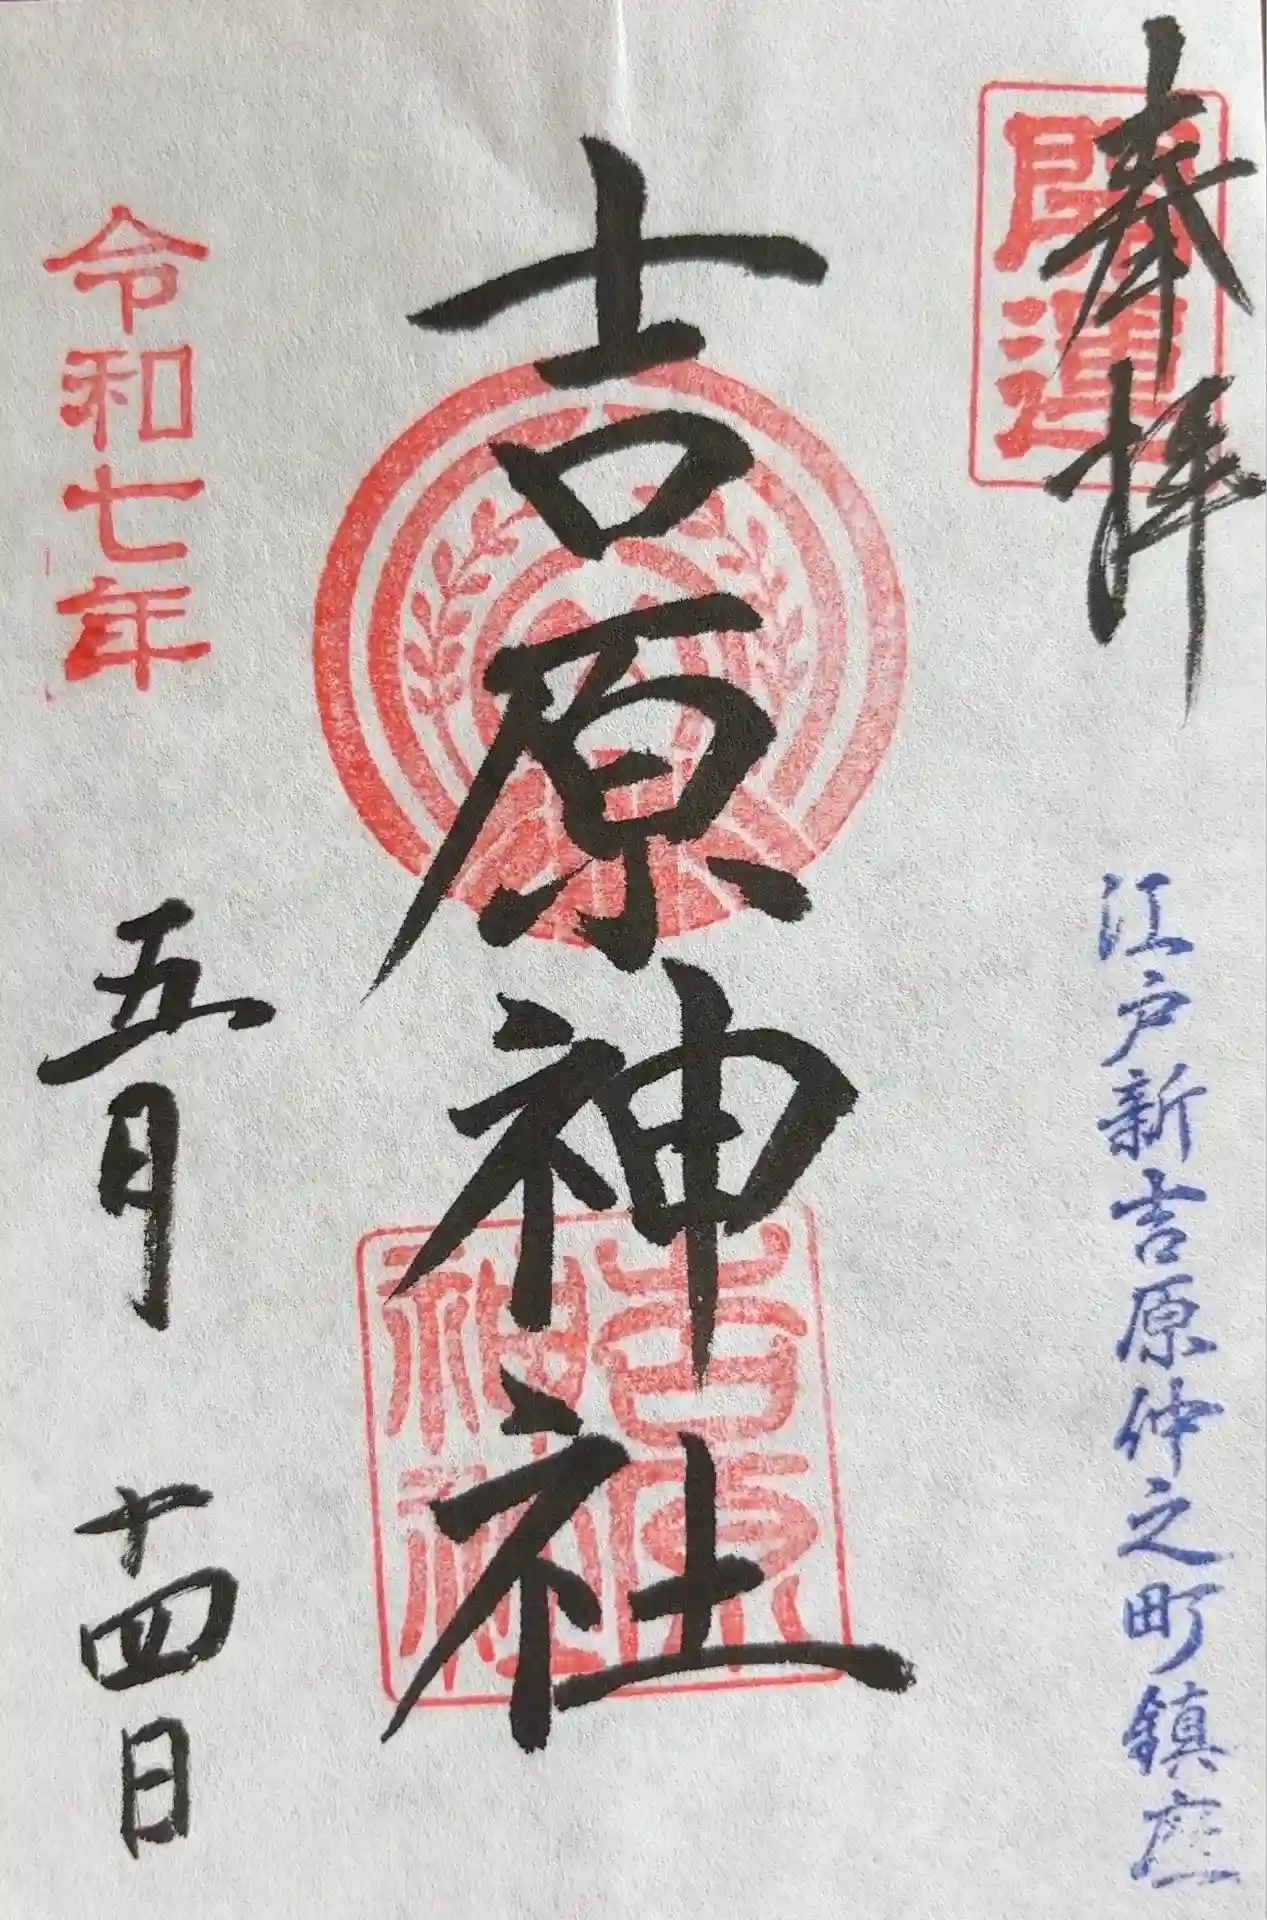 奉拝
開運
江戸新吉原仲之町鎮座
吉原神社
吉原
神社
令和七年
五月 十四日